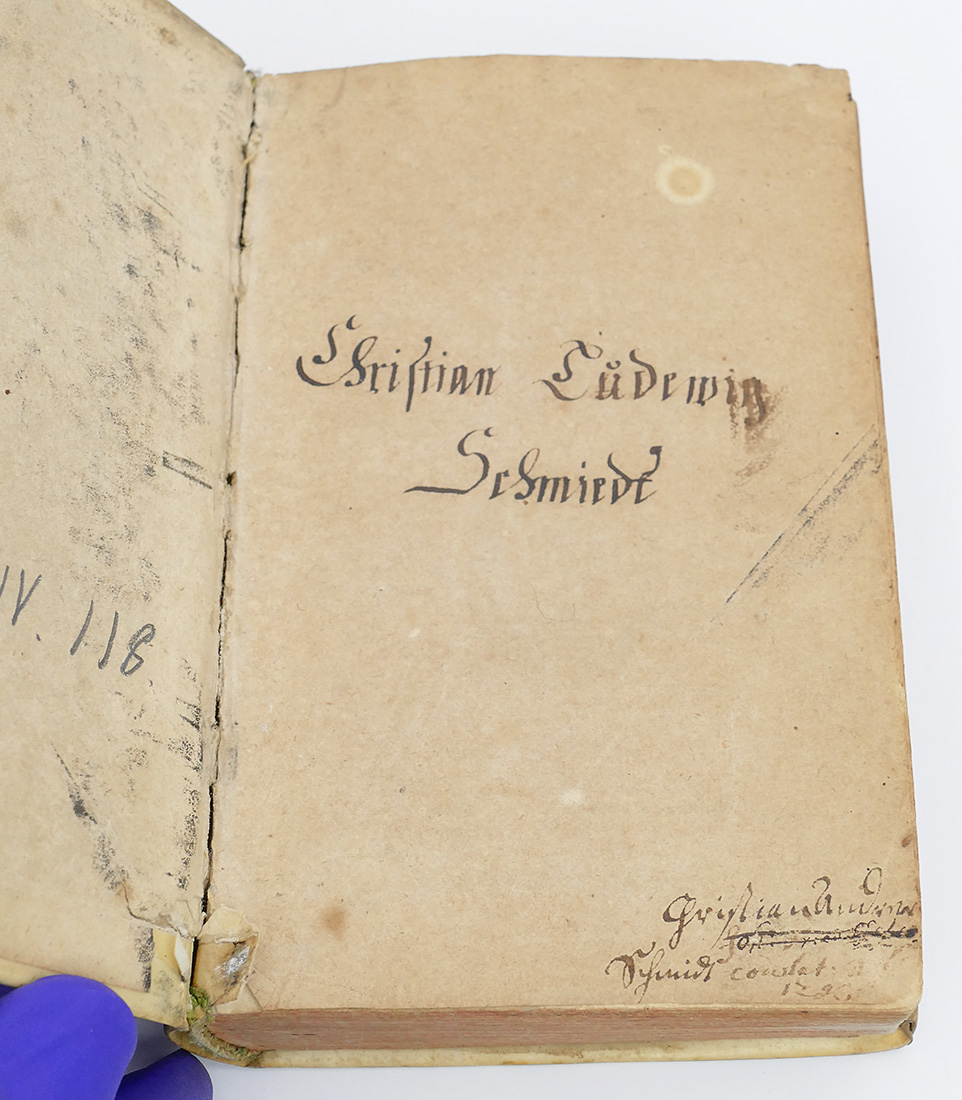 IV. 118
Christian Lůdewig
Schmiedt
Christian Andreas
Schmidt constat